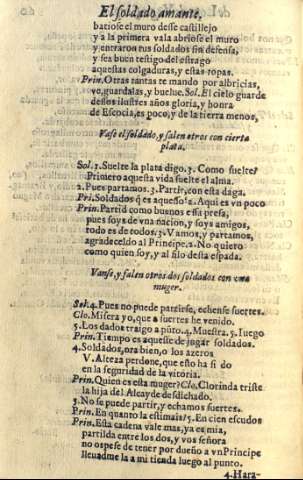 El soldado amante.
batiose el muro desse castillejo
y a la primera vala abriose el muro
y entraron tus soldados sin defensa,
y sea buen testigo del estrago
aquestas colgaduras, y estas ropas.
Prin. Otras tantas te mando por albricias,
ve, guardalas, y buelue. Sol. El cielo guarde
dessos ilustres años gloria, y honra
de Escocia, es poco, y de la tierra menos,
Vase el soldado, y salen otros con cierta
plata.
Sol. 2. Suelte la plata digo. 3. Como suelte?
Primero aquesta vida suelte el alma.
2. Pues partamos. 3. Partir, con esta daga.
Pri. Soldados q̃ es aquesso? 2. Aqui es vn poco
Prin. Partid como buenos essa presa,
pues soys de vna nacion, y soys amigos,
todo es de todos. 3. Vamos, y partamos,
agradeceldo al Principe. 2. No quiero
como quien soy, y al filo desta espada.
Vanse, y salen otros dos soldados con vna
muger.
Sol. 4. Pues no puede partirse, echense suertes.
Clo. Misera yo, que a suertes he venido.
5. Los dados traigo a púto. 4. Muestra. 5. Iuego
Prin. Tiempo es aqueste de jugár soldados.
4. Soldados, ora bien, o los azeros
V. Alteza perdone, que esto ha si do
en la seguridad de la vitoria.
Prin. Quien es esta muger? Clo. Clorinda triste
la hija del Alcayde desdichado.
3. No se puede partir, y echamos suertes.
Prin. En quanto la estimais? 5. En cien escudos
Prin. Esta cadena vale mas, ya es mia,
partilda entre los dos, y vos señora
no os pese de tener por dueño a vn Principe
lleuadme la a mi tienda luego al punto.
4. Hara-